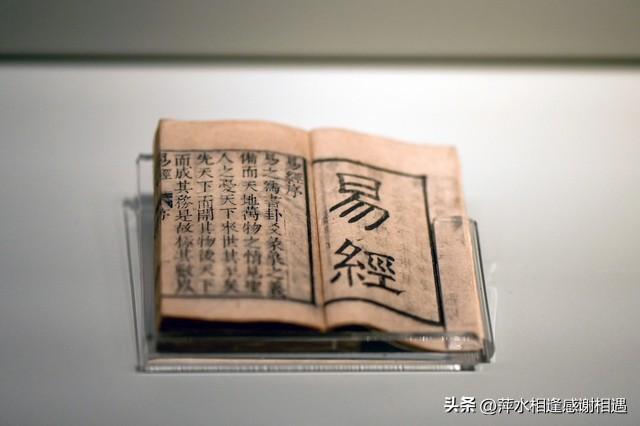 易經
易經序
易之爲書卦爻彖象之義
備而天地萬物之情見聖
人之憂天下來世其至矣
先天下而開其物後天下
而成其務是故極其數以
易經 序
头条 @萍水相逢感谢相遇